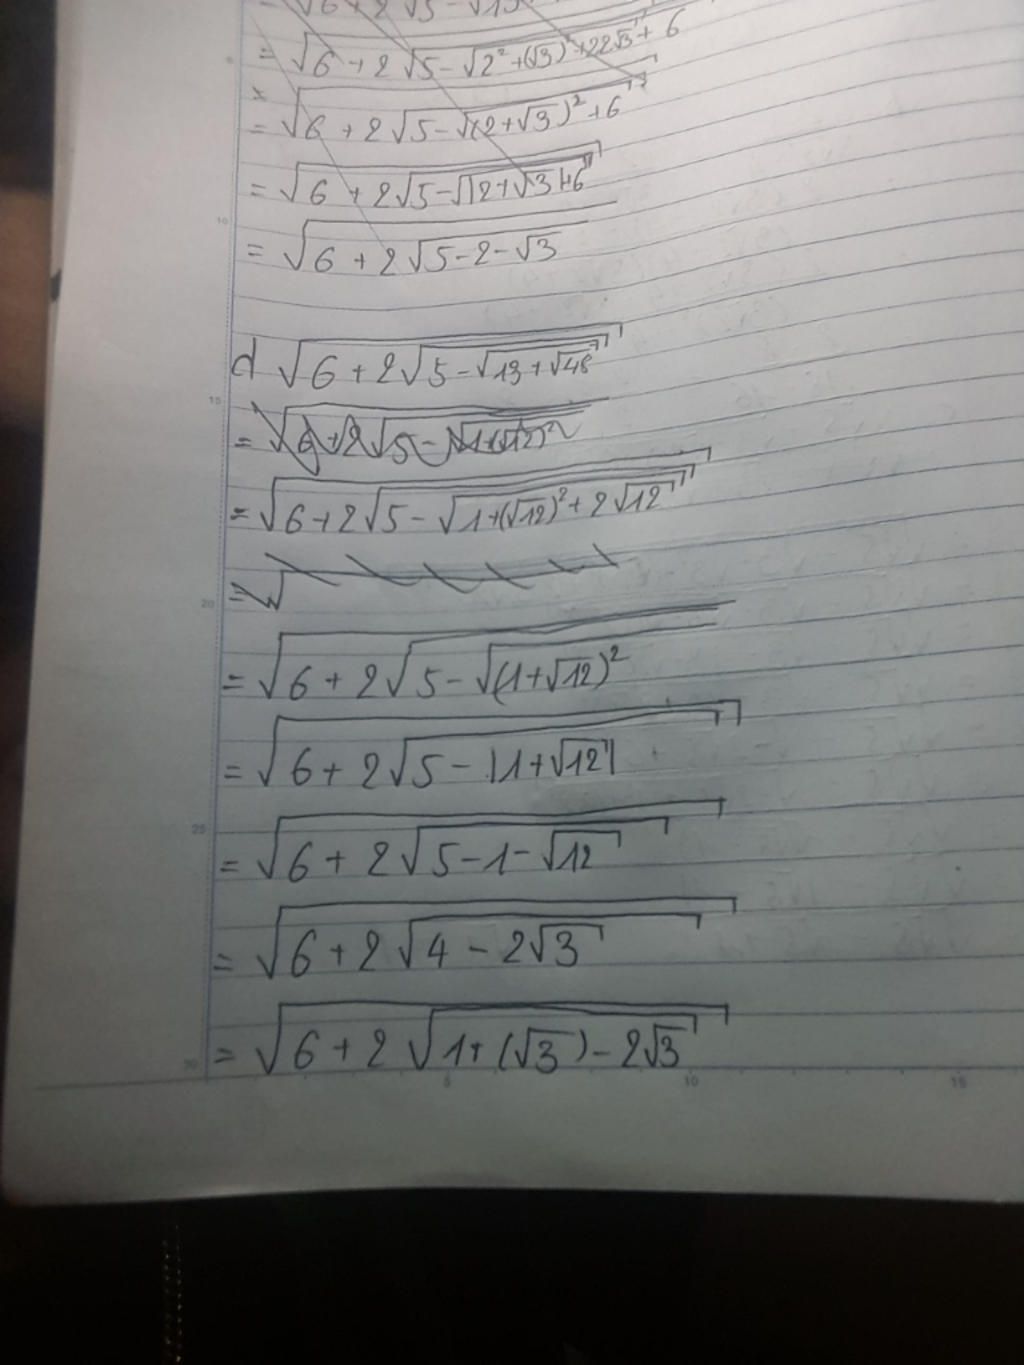 = √6 + 2√5 - √2² + (√3)² + 22√3 + 6
= √6 + 2√5 - √(2 + √3)² + 6
= √6 + 2√5 - √|2 + √3| + 6
= √6 + 2√5 - 2 - √3
10
d √6 + 2√5 - √13 + √48
15
= √6 + 2√5 - √1 + (√12)²
= √6 + 2√5 - √1 + (√12)² + 2√12
= √
20
= √6 + 2√5 - √(1 + √12)²
= √6 + 2√5 - |1 + √12|
25
= √6 + 2√5 - 1 - √12
= √6 + 2√4 - 2√3
= √6 + 2√1 + (√3) - 2√3
30
5 10 15